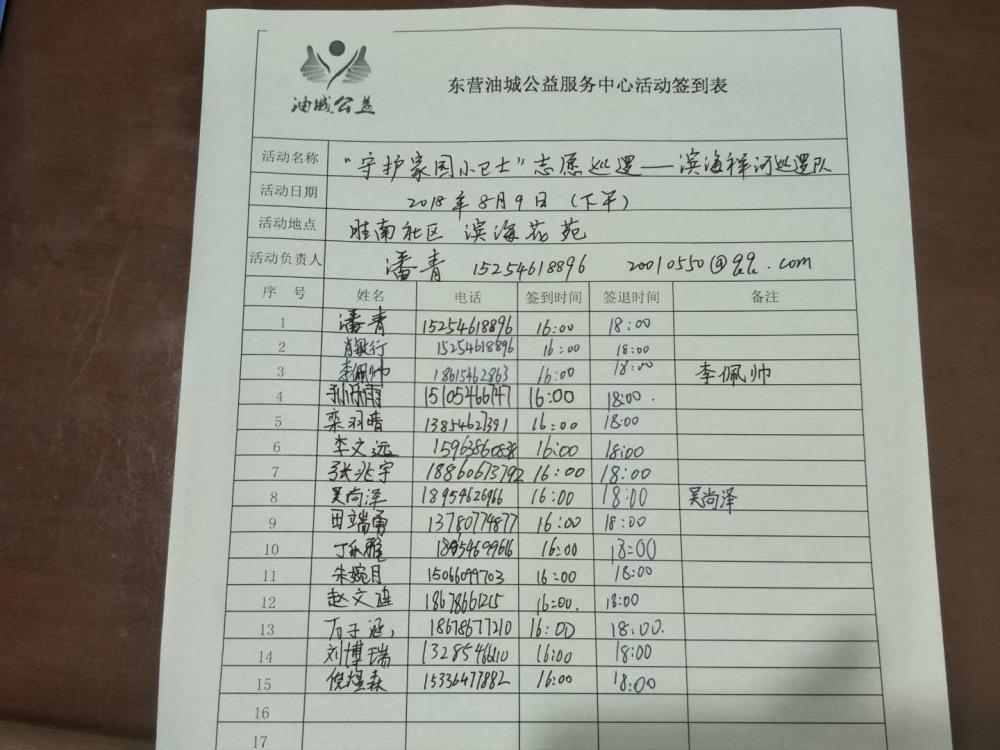 油城公益
东营油城公益服务中心活动签到表
活动名称 "守护家园小卫士"志愿巡逻——滨海祥河巡逻队
活动日期 2018年8月9日(下午)
活动地点 胜南社区 滨海花苑
活动负责人 潘青 15254618896 20010550@qq.com
序号 姓名 电话 签到时间 签退时间 备注
1 潘青 15254618896 16:00 18:00
2 肖敏行 15254618896 16:00 18:00
3 李佩帅 18615462863 16:00 18:00 李佩帅
4 15105466747 16:00 18:00.
5 栾羽晴 13854627391 16:00 18:00
6 李文远 16:00 18:00
7 张兆宇 18860673792 16:00 18:00
8 吴尚泽 18954626966 16:00 18:00 吴尚泽
9 田端勇 13780774877 16:00 18:00
10 16:00 18:00
11 朱婉月 15066099703 16:00 18:00
12 赵文涟 18678661215 16:00. 18:00
13 万子涵 18678677210 16:00 18:00.
14 刘博瑞 16:00 18:00
15 倪煜森 15336477882 16:00 18:00
16
17